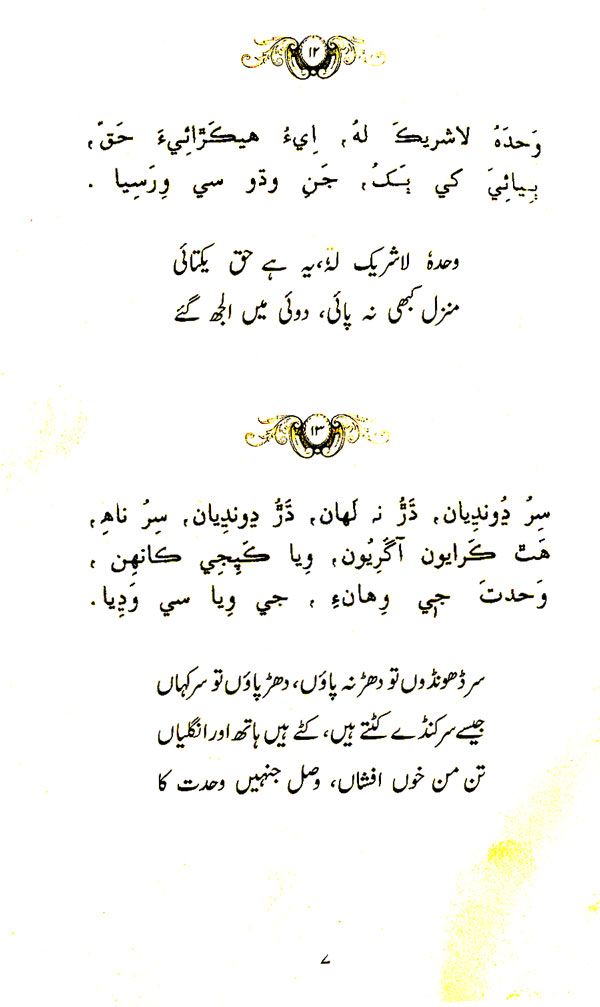 ۱۲
وَحدَہُ لاشريڪَ لہُ، اِيءُ هيڪَڙائِيءَ حَقّ،
ٻِيائِيَ کي ٻَکُ، جَنِ وڌو سي وِرَسِيا .
وحدہٗ لاشریک لہٗ، یہ ہے حق یکتائی
منزل کبھی نہ پائی، دوئی میں الجھ گئے
۱۳
سِرُ ڍُونڍِيان، ڌَڙُ نہ لَهان، ڌَڙُ ڍونڍِيان، سِرُ ناهِ،
هَٿَ ڪَرايون آڱَرِيُون، وِيا ڪَپِجِي ڪانهِن ،
وَحدتَ جٖي وِهانءِ ، جي وِيا سي وَڍِيا.
سر ڈھونڈوں تو دھڑ نہ پاؤں، دھڑ پاؤں تو سر کہاں
جیسے سرکنڈے کٹتے ہیں، کٹے ہیں ہاتھ اور انگلیاں
تن من خوں افشاں، وصل جنہیں وحدت کا
۷